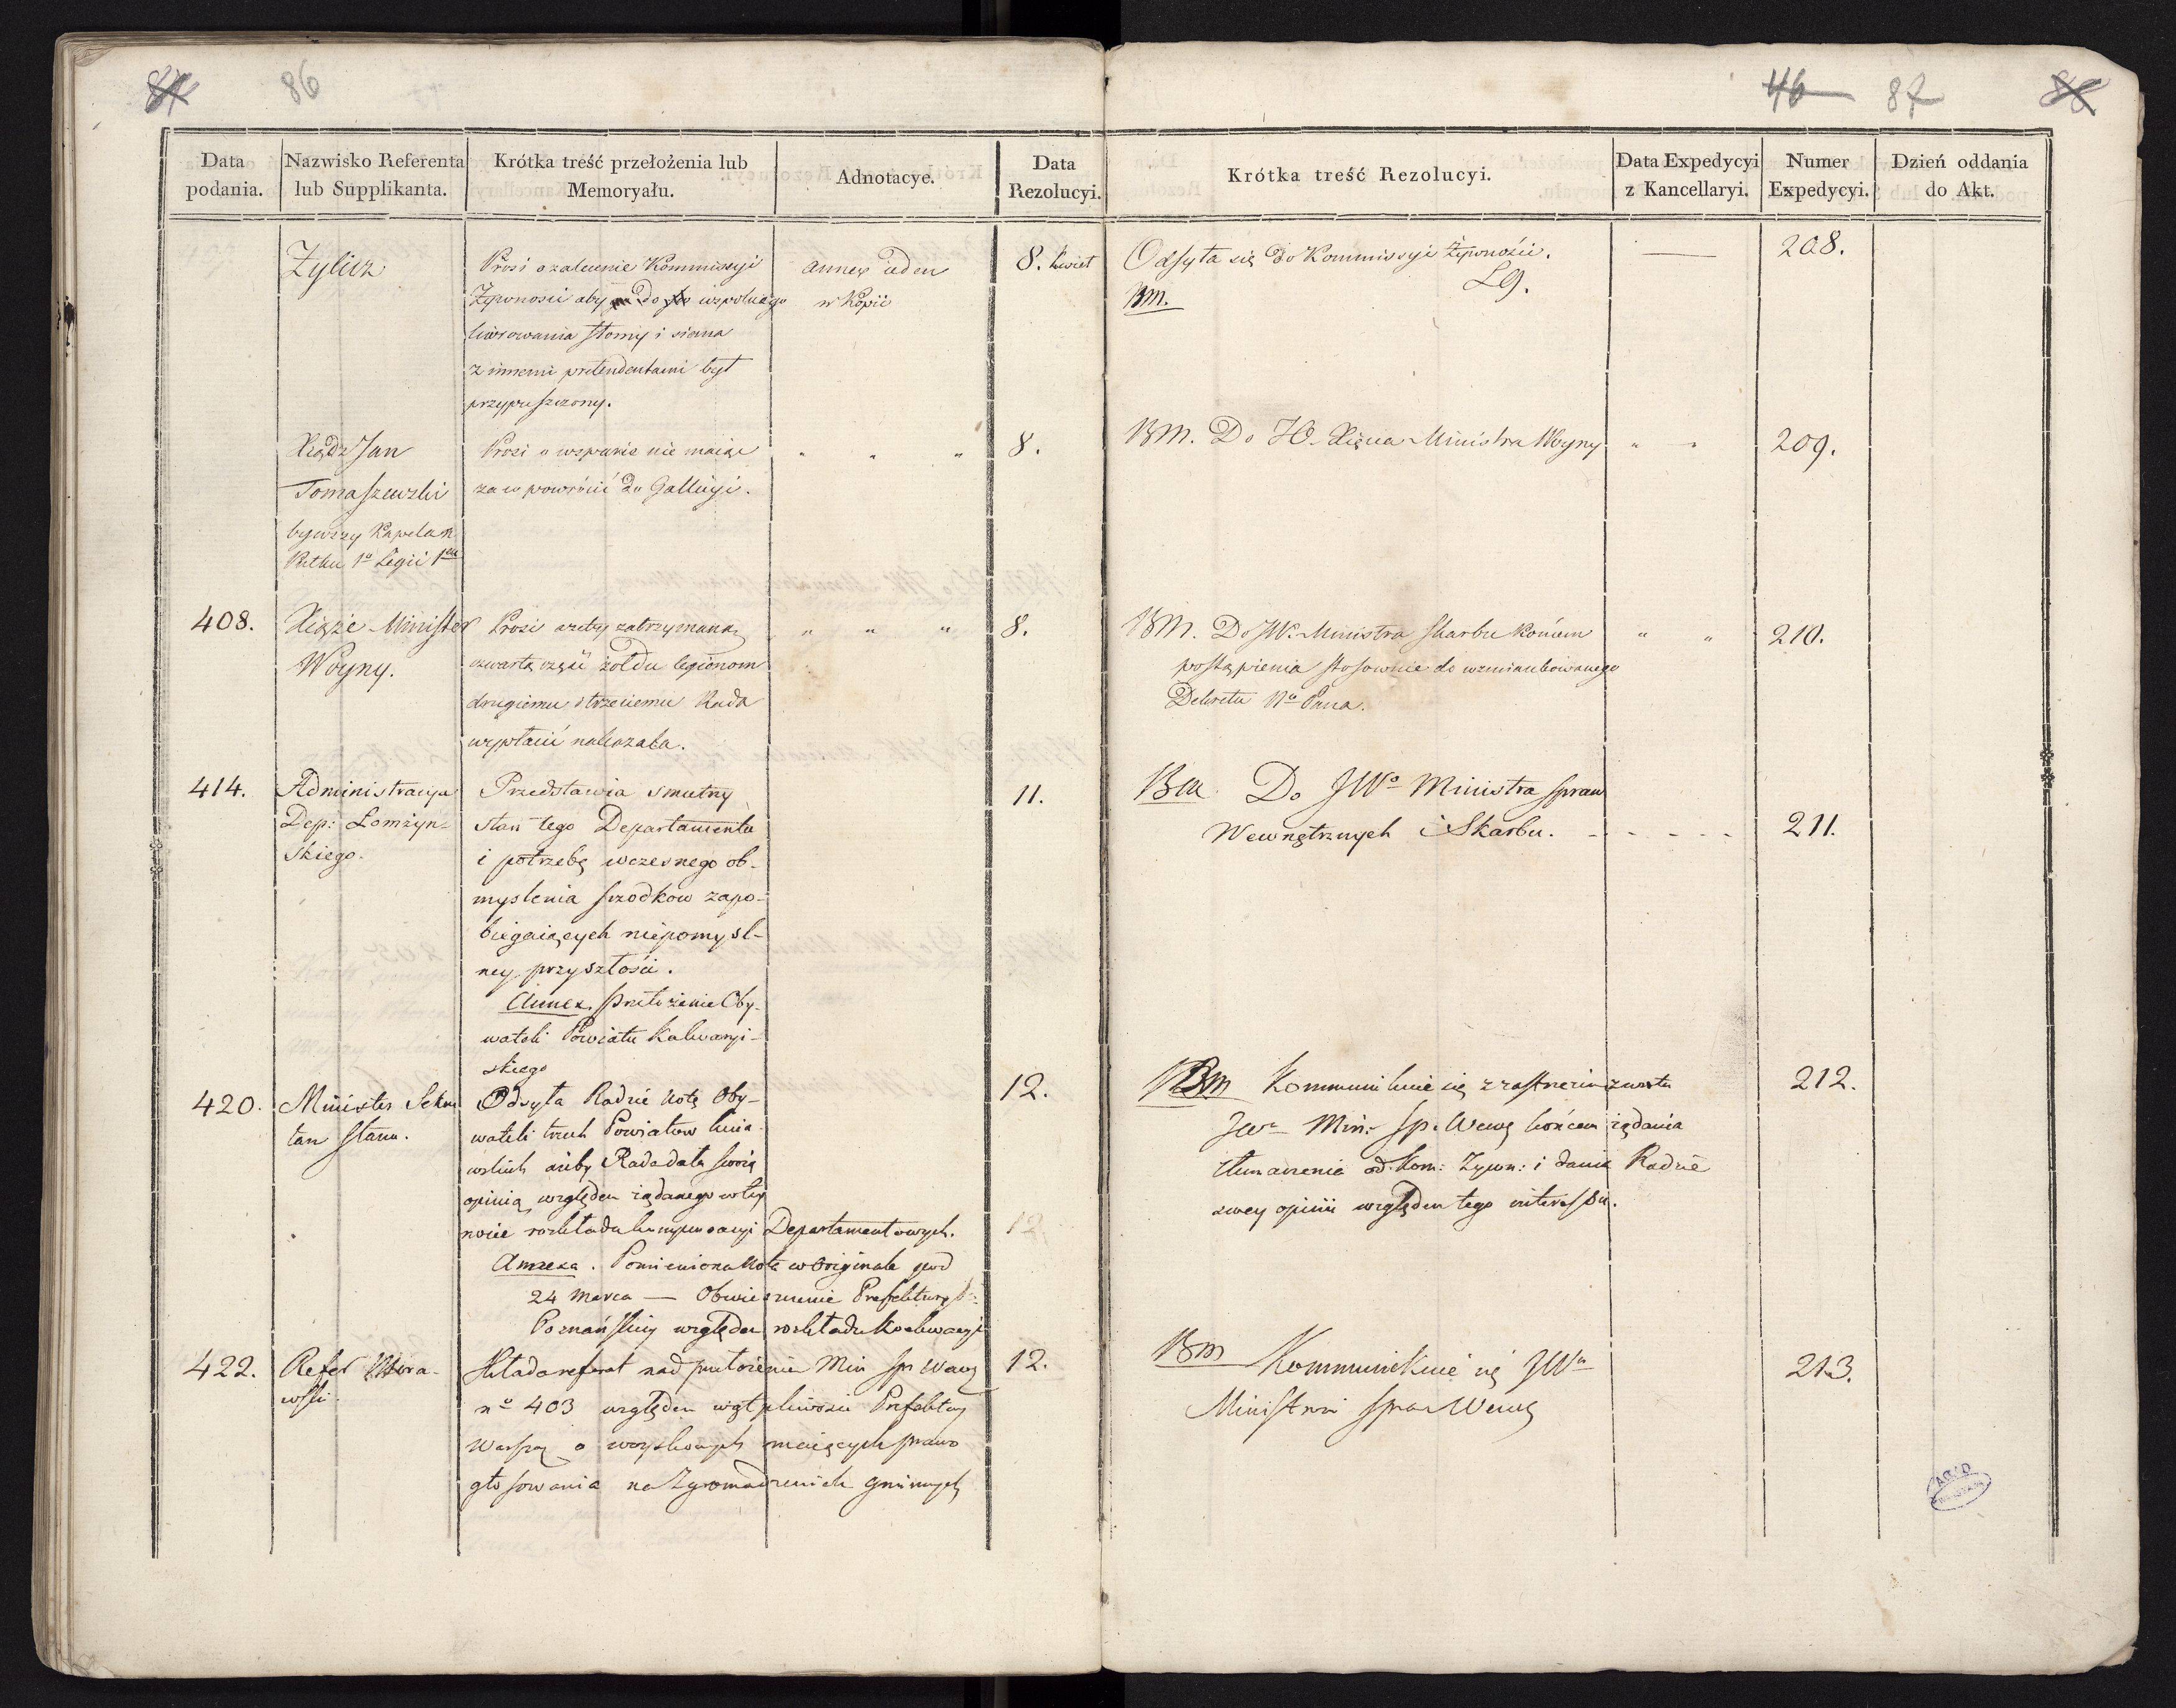 86
46 87
Data podania.
Nazwisko Referenta lub Supplikanta.
Krótka treść przełożenia lub Memoryału.
Adnotacye.
Data Rezolucyi.
Krótka treść Rezolucyi.
Data Expedycyi z Kancellaryi.
Numer Expedycyi.
Dzień oddania do Akt.
Żylicz
Prosi o zalecenie Kommissyi
Żywnosci aby do
liwrowania słomy i siana
z innemi pretendentami był
przypuszczony.
annex ieden
w Kopii
8. kwiet
Odsyła się do Kommissyi Żywności.
BM.
208.
Xiądz Jan
Tomaszewski
bywszy Kapelan
Pułku 1o Legii 1
Prosi o wsparcie nie maiąc
za co powrócić do Gallicyi.
" " "
8.
BM. Do JO. Xięcia Ministra Woyny
209.
408.
Xiąże Minister
Woyny.
Prosi ażeby zatrzymaną
czwartą część żołdu legionom
drugiemu i trzeciemu Rada
wypłacić nakazała.
" " "
8.
BM. Do JW. Ministra Skarbu końcem
postąpienia stosownie do wzmiankowanego
Dekretu No Pana.
" "
210.
414.
Administracya
Dep: Łomżyn-
skiego.
Przedstawia smutny
stan tego Departamentu
i potrzebę wczesnego ob-
myslenia srzodkow zapo-
biegaiących niepomysl-
ney przyszłości.
Annex. przełożenie Oby-
wateli Powiatu Kalwaryi-
skiego
11.
BM Do JWo Ministra Spraw
Wewnętrznych i Skarbu. - - - - -
211.
420.
Minister Sekre
tarz Stanu.
Odsyła Radzie notę Oby-
wateli trzech Powiatow
ażeby Rada dała swoią
opinią względem żądanego
rozkładu Departamentowych.
Annexa. Pomieniona nota w Originale pod
24 Marca — Obwieszczenie Prefektury
Poznańskiey względem rozkładu
12.
BM Kommunikuie się z zastrzeżeniem zwrotu
JWo Min: Sp: Wewę końcem żądania
tłumaczenia od Kom: Żywn: i dania Radzie
swey opinii względem tego interessu.
212.
12
422.
Refer Mora-
wski.
Składa referat nad przełożenie Min Sp Wewę
no 403 względem wątpliwości Prefektury
Warszaw o woyskowych maiących prawo
głosowania na Zgromadzeniach Gminnych
12.
BM Kommunikuie się JWu
Ministrowi Spraw Wewę
213.